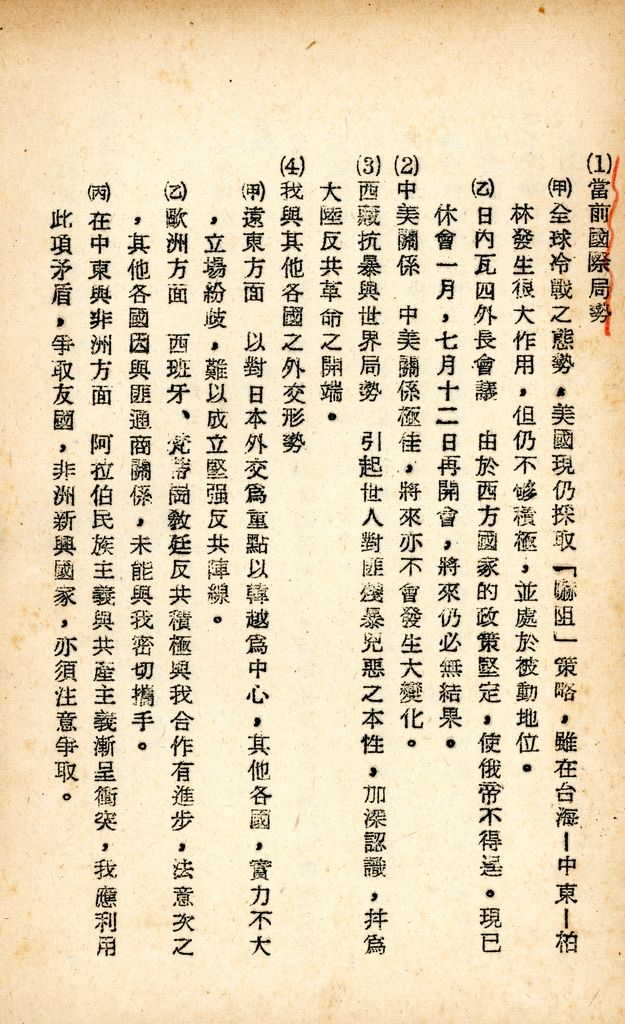 ⑴當前國際局勢
㈙全球冷戰之態勢，美國現仍採取「嚇阻」策略，雖在台海－中東－柏
林發生很大作用，但仍不够積極，並處於被動地位。
㈚日內瓦四外長會議　由於西方國家的政策堅定，使俄帝不得逞。現已
休會一月，七月十二日再開會，將來仍必無結果。
⑵中美關係　中美關係極佳，將來亦不會發生大變化。
⑶西藏抗暴與世界局勢　引起世人對匪殘暴兇惡之本性，加深認識，幷為
大陸反共革命之開端。
⑷我與其他各國之外交形勢
㈙遠東方面　以對日本外交為重點以韓越為中心，其他各國，實力不大
，立場紛歧，難以成立堅强反共陣線。
㈚歐洲方面　西班牙、梵蒂岡教廷反共積極與我合作有進步，法意次之
，其他各國因與匪通商關係，未能與我密切攜手。
㈛在中東與非洲方面　阿拉伯民族主義與共產主義漸呈衝突，我應利用
此項矛盾，爭取友國，非洲新興國家，亦須注意爭取。